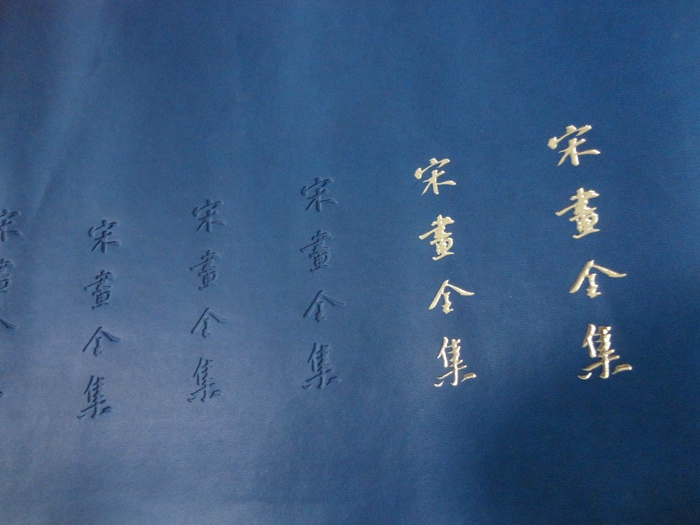 宋畫全集
宋畫全集
宋畫全集
宋畫全集
宋畫全集